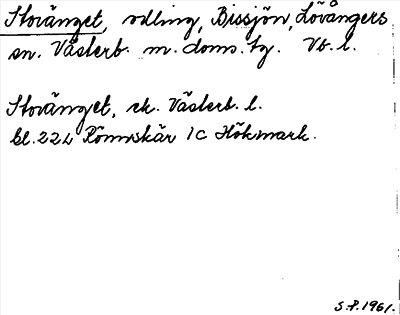 Storänget, odling, Bissjön, Lövångers
sn. Västerb. m. doms. tg. Vb. l.
Storänget, ek. Västerb. l.
bl. 22L Rönnskär 1C Hökmark.
S.P. 1961.